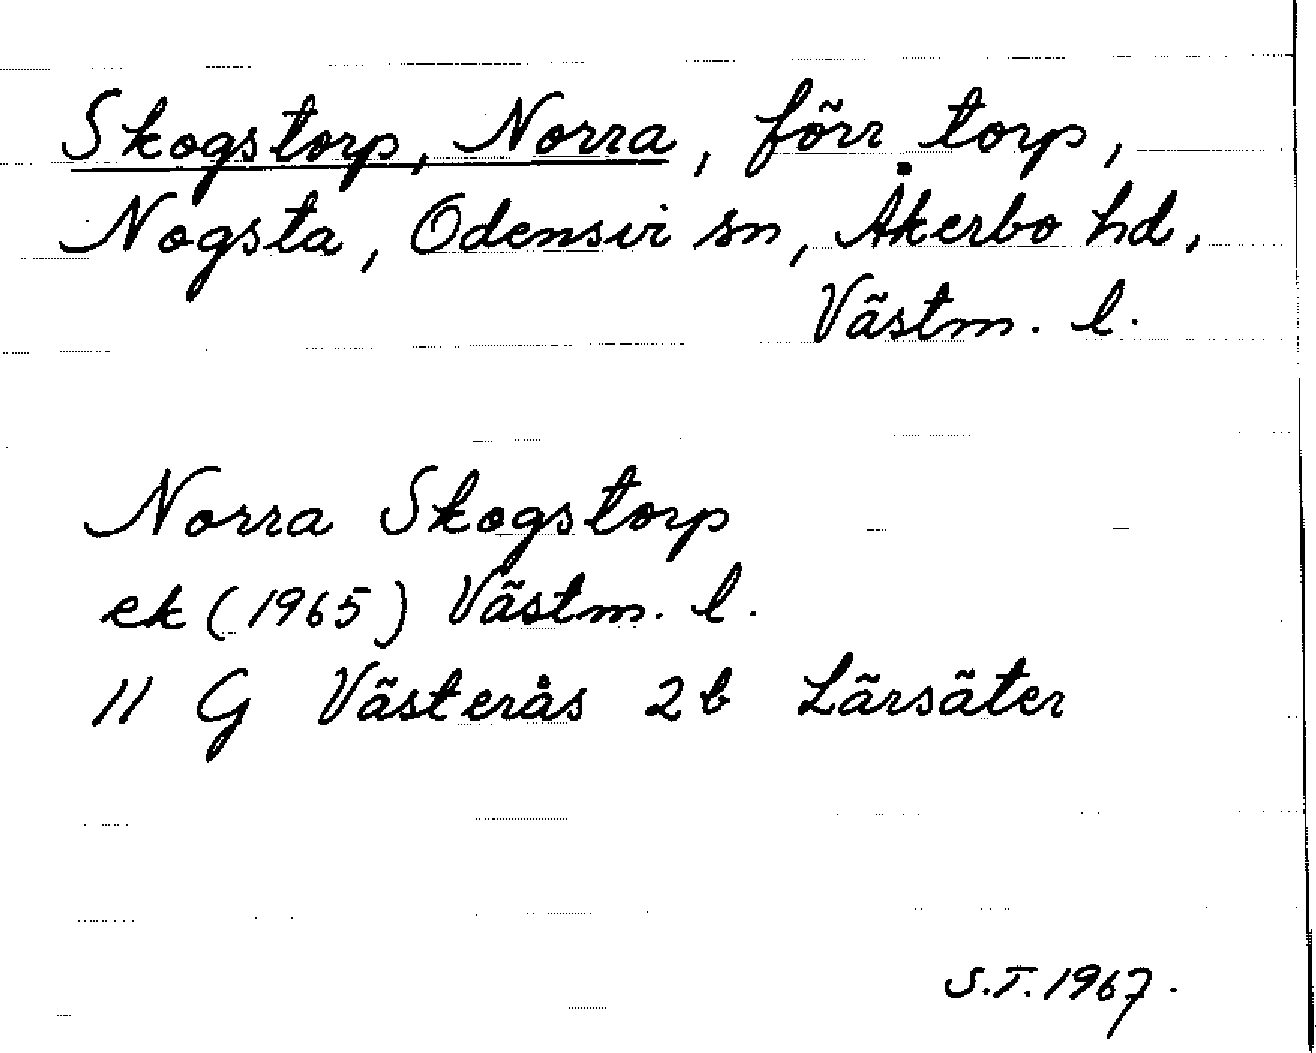 Skogstorp, Norra, förr torp,
Nogsta, Odensvi sn, Åkerbo hd,
Västm. l.
Norra Skogstorp
ek (1965) Västm. l.
11 G Västerås 2b Lärsäter
S.T. 1967.